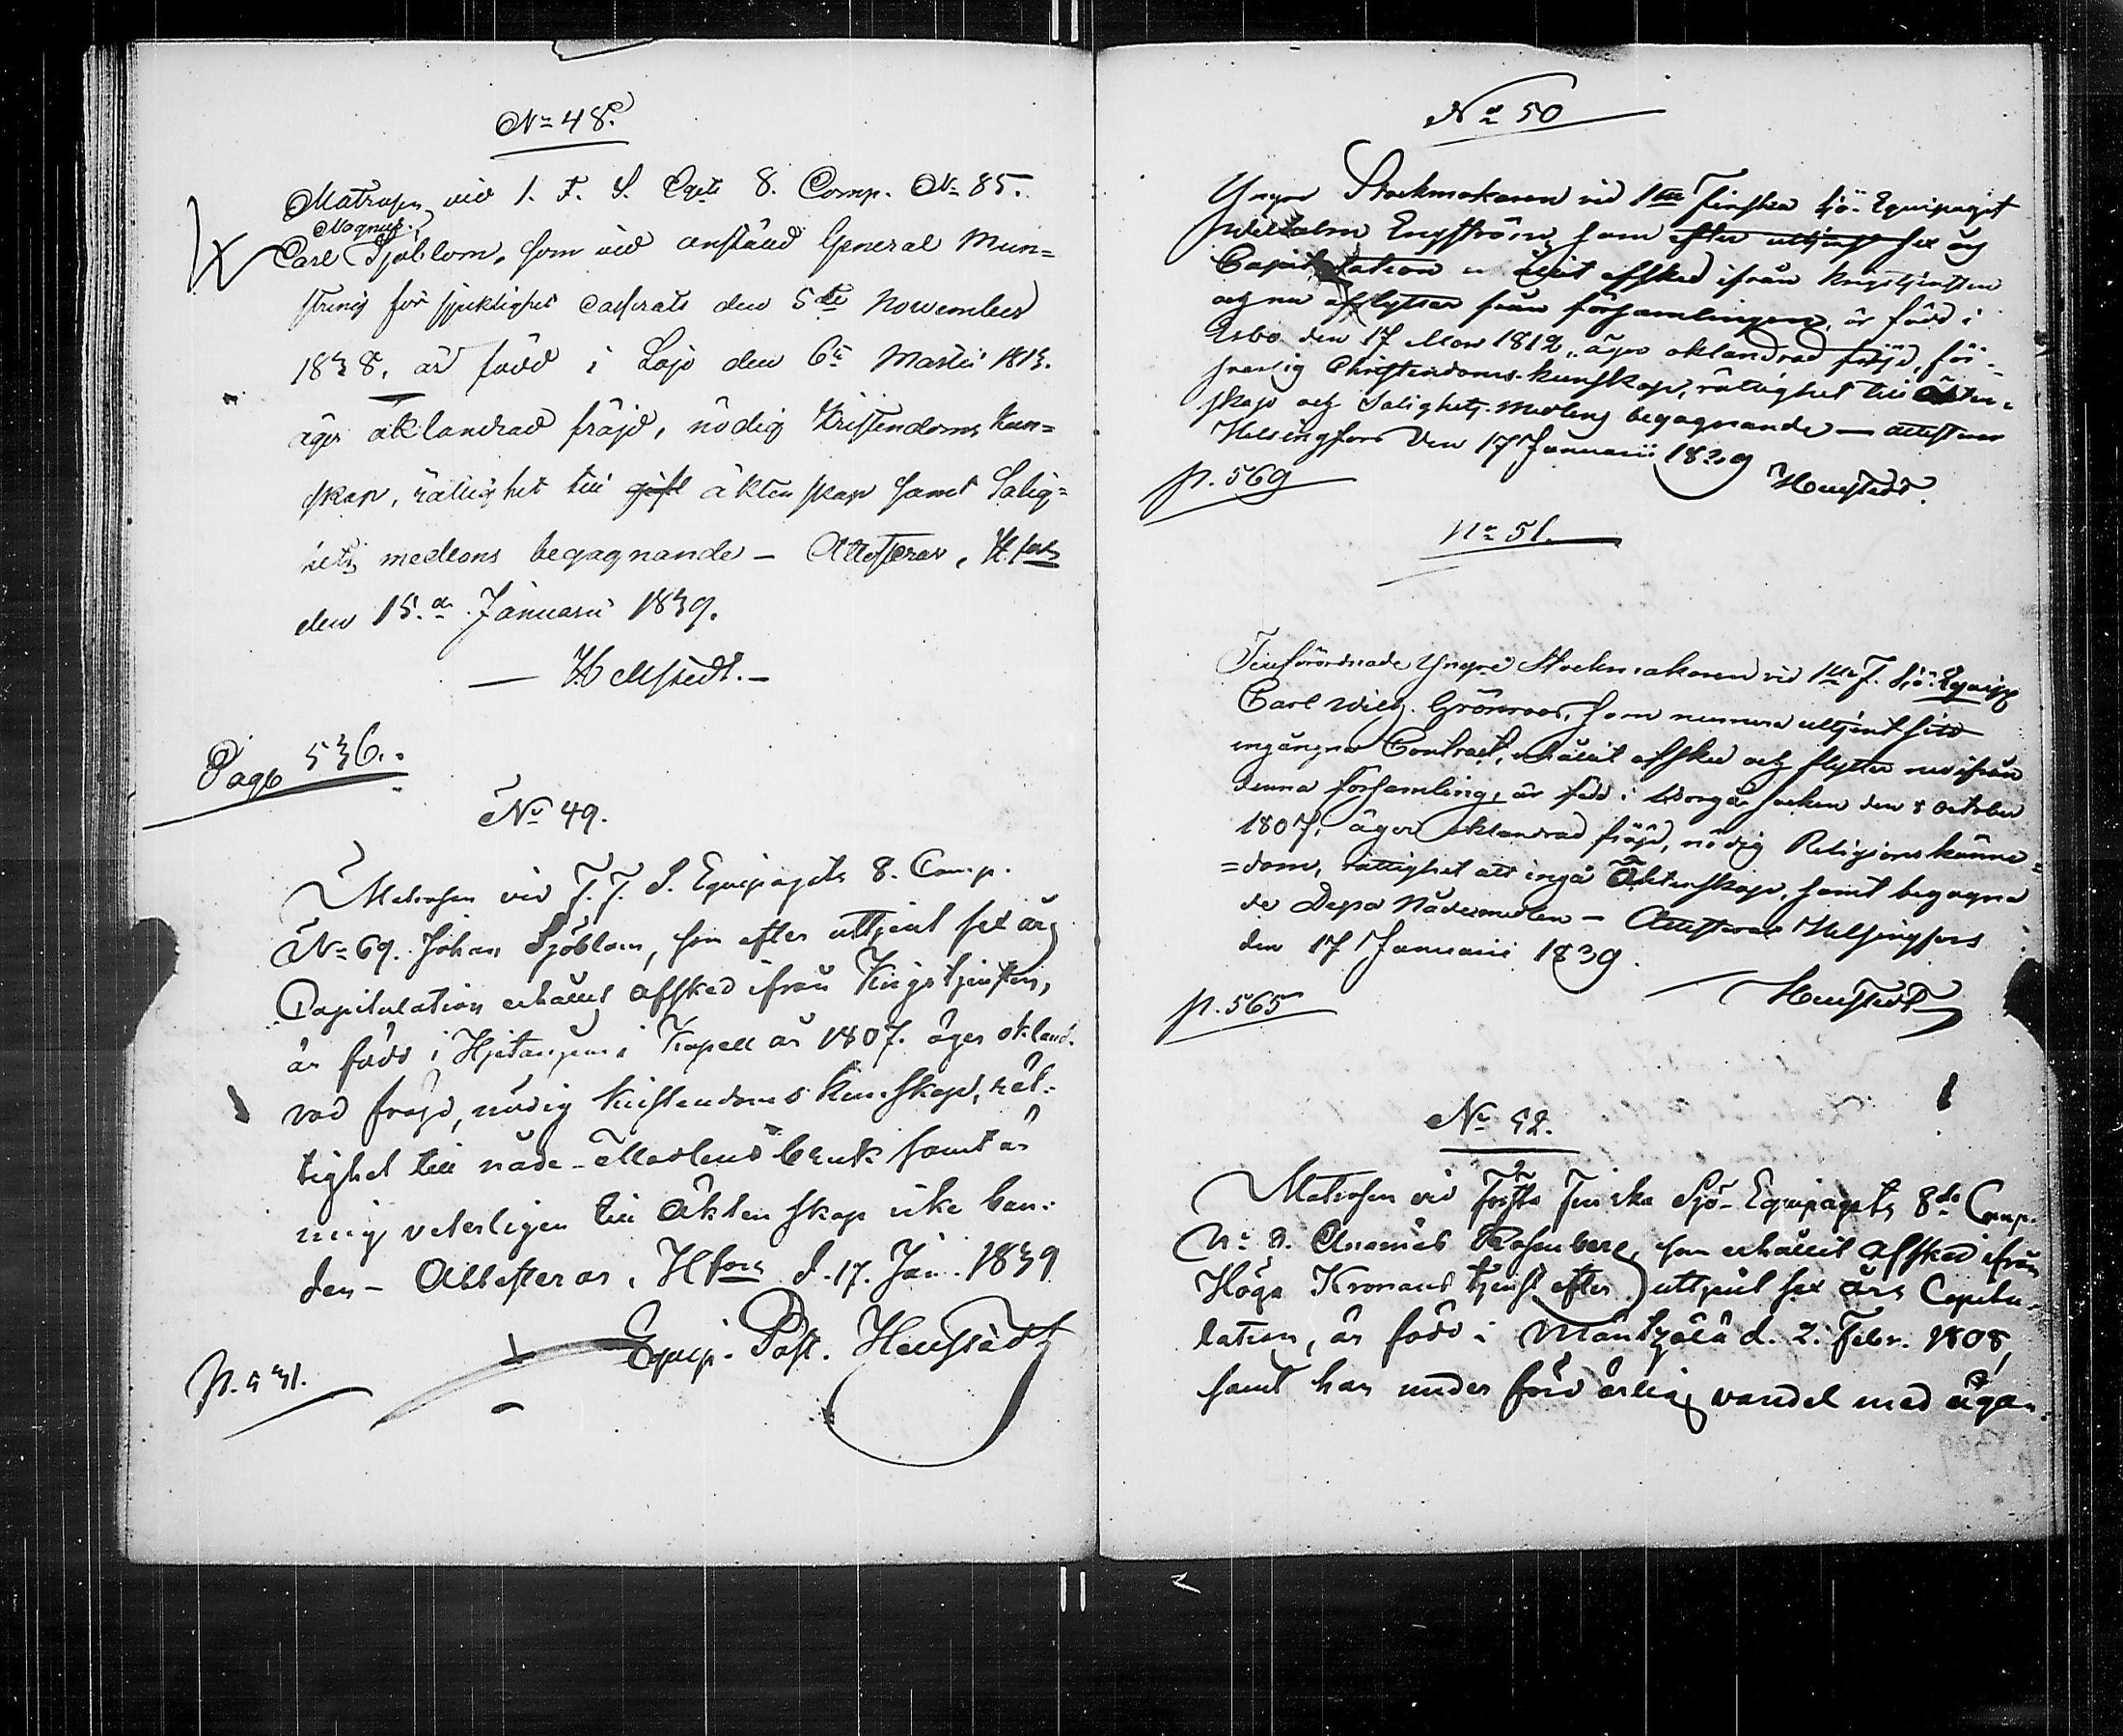 No 48.
Matrosen vid 1. F. S. Eqts 8. Comp. No 85.
Magnus
Carl Sjöblom, som vid anstäld General Mun=
string för sjuklighet casserats den 5te November
1838, är född i Lojo den 6te Martii 1813.
äger oklandrad fräjd, nödig Kristendoms kun=
skap, rättighet till äktenskap samt Salig=
hets medlens begagnande – Attesteras, H.fors
den 15de Januarii 1839.
— Hellstedt. –
Page 536.
No 49.
Matrosen vid F. F. S. Equipagets 8. Comp.
No 69. Johan Sjöblom, som efter uttjent sex års
Capitulation erhållit afsked ifrån Krigstjensten,
är född i Kapell år 1807. äger okland.
rad frejd, nödig kristendoms kunskap, rät=
tighet till nåde-Medlens bruk samt är
mig veterligen till äktenskap icke bun=
den – Attesteras, Hfors d. 17. Jan. 1839
Equip. Past. Hellstedt
p. 531.
No 50
Yngre Stockmakaren vid 1sta Finska Sjö-Equipaget
Wilhelm Engström, som efter uttjent sex års
Capitulation erhållit afsked ifrån Krigstjensten
och nu afflyttar från församlingen, är född i
Esbo den 17 Mars 1812, äger oklandrad fräjd, för=
svarlig Christendoms-kunskap, rättighet till Äkten=
skap och Salighets-medlens begagnande — attesteras
Helsingfors den 17 Januarii 1839
Hellstedt.
p. 569
No 51.
Yngre Stockmakaren vid 1sta F. Sjö-Equip
Carl Wilh. Grönroos, som numera uttjent sitt
ingångna Contract, erhållit afsked och flyttar nu ifrån
denna församling, är född i Borgå socken den 8 October
1807, äger oklandrad fräjd, nödig Religionskänne=
=dom, rättighet att ingå Äktenskap, samt begagna
de Nådemedlen – Attesteras Helsingfors
den 17 Januarii 1839.
Hellstedt
p. 565
No 52.
Matrosen vid Första Finska Sjö-Equipagets 8de Comp.
No 8. Rosenberg, som erhållit afsked ifrån
Höga Kronans tjenst efter uttjent sex års Capitu=
lation, är född i Mäntzälä d. 2. Febr. 1808,
samt har under förd ärlig vandel med ägan=